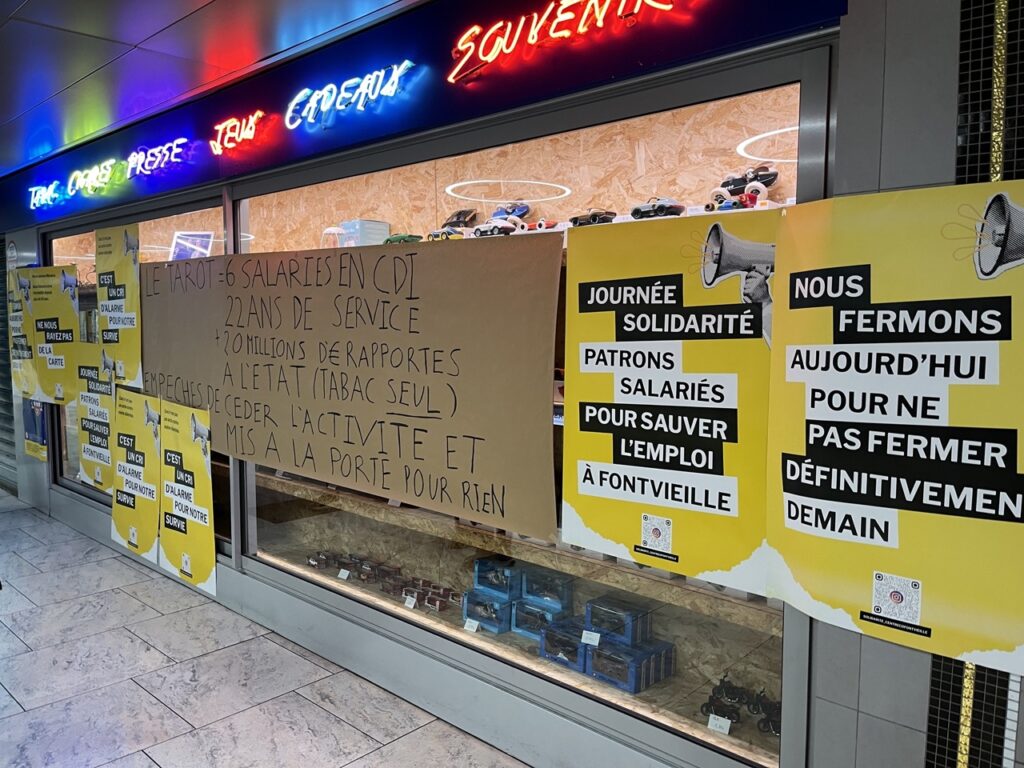 TABAC CIGARES PRESSE JEUX CADEAUX SOUVENIR
NE NOUS
RAYEZ PAS
DE LA
CARTE
C'EST
UN CRI
D'ALARME
POUR NOTRE
SURVIE
JOURNÉE
SOLIDARITÉ
PATRONS
SALARIÉS
POUR SAUVER
L'EMPLOI
À FONTVIEILLE
C'EST
UN CRI
D'ALARME
POUR NOTRE
SURVIE
C'EST
UN CRI
D'ALARME
POUR NOTRE
SURVIE
LE TAROT = 6 SALARIES EN CDI
22 ANS DE SERVICE
+ 20 MILLIONS D'€ RAPPORTES
A L'ETAT (TABAC SEUL)
EMPECHES DE CEDER L'ACTIVITE ET
MIS A LA PORTE POUR RIEN
JOURNÉE
SOLIDARITÉ
PATRONS
SALARIÉS
POUR SAUVER
L'EMPLOI
À FONTVIEILLE
SOLIDARITE_CENTRECOFONTVIEILLE
NOUS
FERMONS
AUJOURD'HUI
POUR NE
PAS FERMER
DÉFINITIVEMEN
DEMAIN
SOLIDARITE_CENTRECOFONTVIEILLE